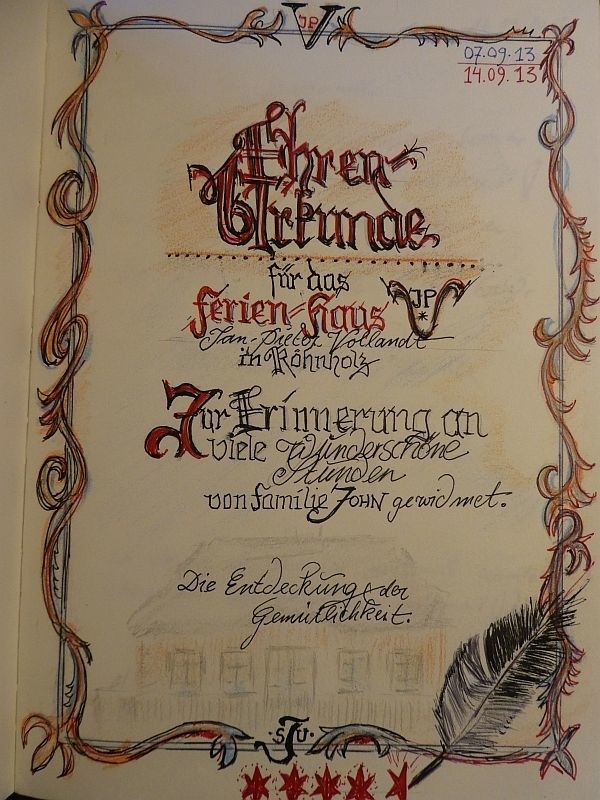 JP V
07.09.13
14.09.13
Ehren-
Urkunde
für das
Ferien-Haus JPV
Jan-Pieter Vollandt
in Röhnholz
Zur Erinnerung an
viele wunderschöne
Stunden
von Familie JOHN gewidmet.
Die Entdeckung der
Gemütlichkeit.
S J U